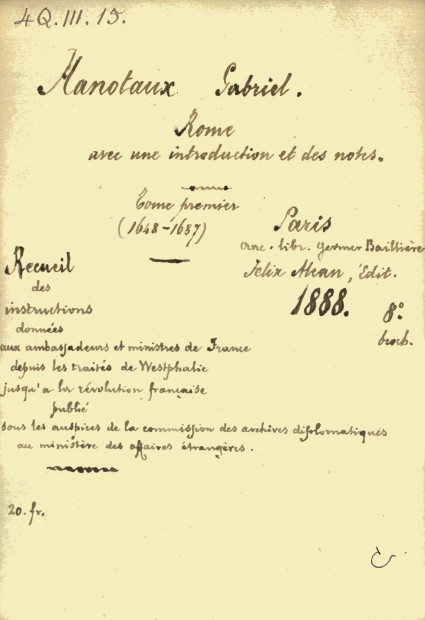 4Q. III. 15.
Hanotaux Gabriel.
Rome
avec une introduction et des notes.
Tome premier
(1648-1687)
Paris
anc. libr. Germer Baillière
Félix Alcan, Edit.
1888. 8°
broch.
Recueil
des
instructions
données
aux ambassadeurs et ministres de France
depuis les traités de Westphalie
jusqu'à la révolution française
publié
sous les auspices de la commission des archives diplomatiques
au ministère des affaires étrangères.
20. fr.